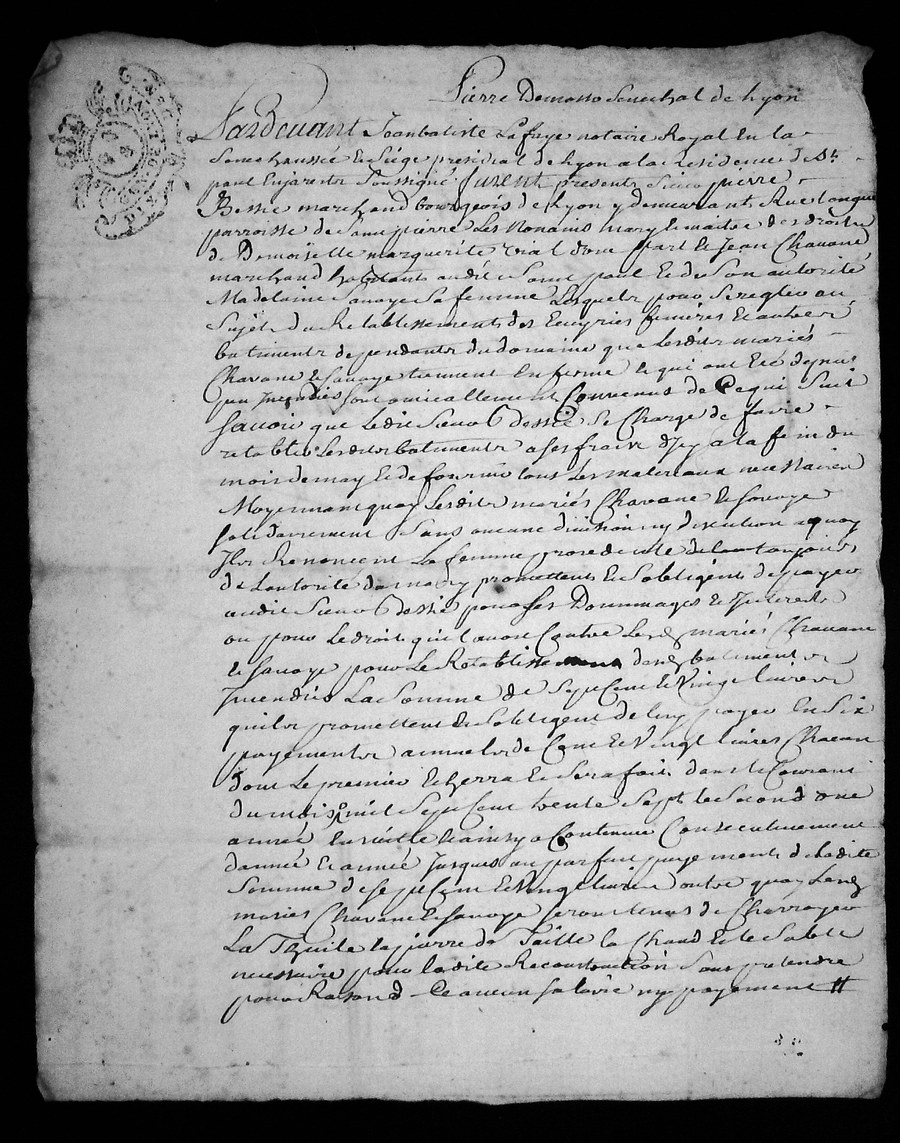 Pierre Demasso Senechal de Lyon
Pardevant Jean batiste Lafaye notaire Royal En la
Senechaussée et Siége presidial de Lyon a la residence de St
paul Enjarestz Soussigné furent presents Sieur pierre
Bessie marchand bourgeois de Lyon y demeurant Rue longue
parroisse de Saint pierre Les Nonains mary et maitre des droits
de Demoiselle marguerite vial d'une part Et Jean Chavane
marchand habitant audit Saint paul Et de Son autorité
Madelaine Savoye Sa femme Lesquels pour Se regler au
Sujet du Retablissements des Ecuyries fenières Et autres
batiments dependants du domaine que Lesdits mariés
Chavane et Savoye tiennent En ferme Et qui ont Eté depuis
peu Incendiés Sont amicallement Convenus de Ce qui Suit
Savoir que Ledit Sieur Bessie Se Charge de faire
retablir Lesdits batiments a Ses frais D'Icy a la fin du
mois de may Et de fournir tous Les matereaux necessaires
Moyennant quoy Lesdits mariés Chavane Et Savoye
Solidairement Sans aucune division ny discution a quoy
Ils Renoncent La femme procedente de toujours
de Lautorité du mary promettent Et Sobligent de payer
audit Sieur Bessie pour Ses Dommages Et Interests
ou pour Le droit qu'il avoit Contre Lesd mariés Chavane
Et Savoye pour Le Retablissement desd batiments
Incendiés La Somme de Sept Cent Et Vingt Livres
quils promettent Et Sobligent de luy payer En Six
payements annuels de Cent Et Vingt livres Chacun
dont Le premier Echerra Et Sera fait dans le Courant
du mois mil Sept Cent trente Sept le Second une
année Ensuitte Et ainsy a Continuer Consecutivement
d'année Et année Jusques au parfait payement de ladite
Somme de Sept Cent Et Vingt livres outre quoy Lesd
mariés Chavane Et Savoye Seront tenus de Charroyer
La Tquile la pierre de Taille la Chaud Et le Sable
necessaire pour ladite Reconstruction Sans pretendre
pour Raison de Ce aucun Salaire ny payement